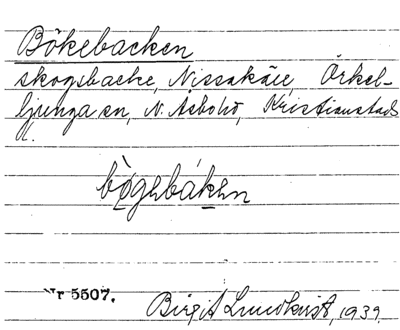 Bökebacken
skogsbacke, Nissakäie, Örkel-
ljunga sn, N. Åsbo hd, Kristianstads
l.
bò̀gebáken
Nr 5507.
Birgit Lundkvist, 1939.